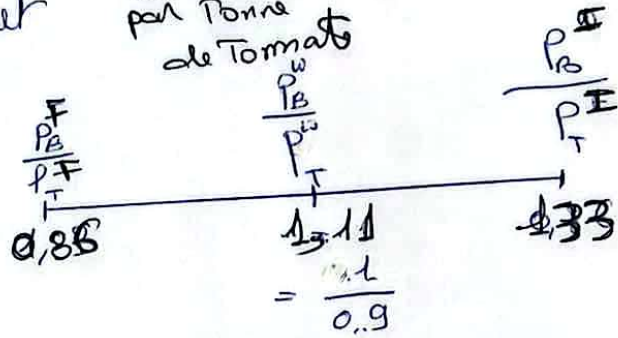 et par Tonne
de Tomate
P_B^F / P_T^F
P_B^W / P_T^W
P_B^I / P_T^I
0,86 1,11 1,33
= 1 / 0,9